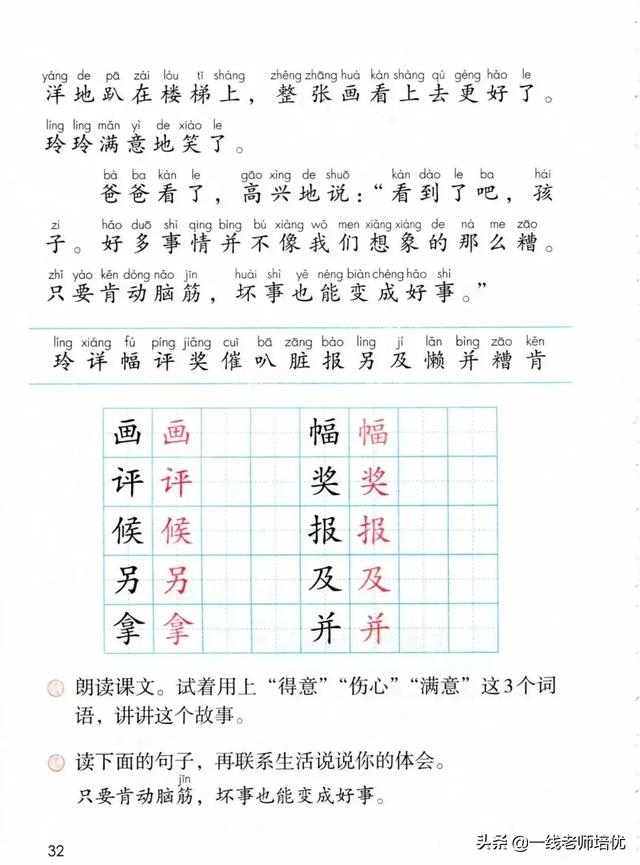 yáng de pā zài lóu tī shàng zhěng zhāng huà kàn shàng qù gèng hǎo le
洋地趴在楼梯上，整张画看上去更好了。
líng ling mǎn yì de xiào le
玲玲满意地笑了。
bà ba kàn le gāo xìng de shuō kàn dào le ba hái
爸爸看了，高兴地说：“看到了吧，孩
zi hǎo duō shì qing bìng bú xiàng wǒ men xiǎng xiàng de nà me zāo
子。好多事情并不像我们想象的那么糟。
zhǐ yào kěn dòng nǎo jīn huài shì yě néng biàn chéng hǎo shì
只要肯动脑筋，坏事也能变成好事。”
líng xiáng fú píng jiǎng cuī bā zāng bào lìng jí lǎn bìng zāo kěn
玲详幅评奖催叭脏报另及懒并糟肯
画画 幅幅
评评 奖奖
候候 报报
另另 及及
拿拿 并并
朗读课文。试着用上“得意”“伤心”“满意”这3个词
语，讲讲这个故事。
读下面的句子，再联系生活说说你的体会。
jīn
只要肯动脑筋，坏事也能变成好事。
32
头条@一线老师培优